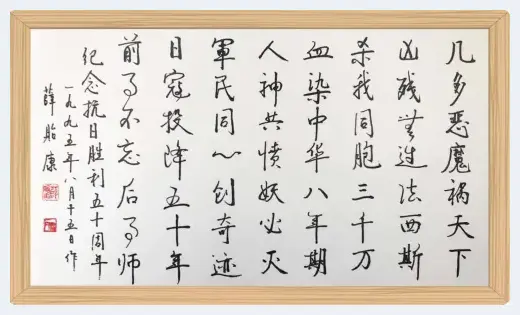 几多恶魔祸天下
凶残無过法西斯
杀我同胞三千万
血染中华八年期
人神共愤妖必灭
軍民同心创奇迹
日寇投降五十年
前事不忘后事师
纪念抗日胜利五十周年
一九九五年八月十五日作
薛贻康